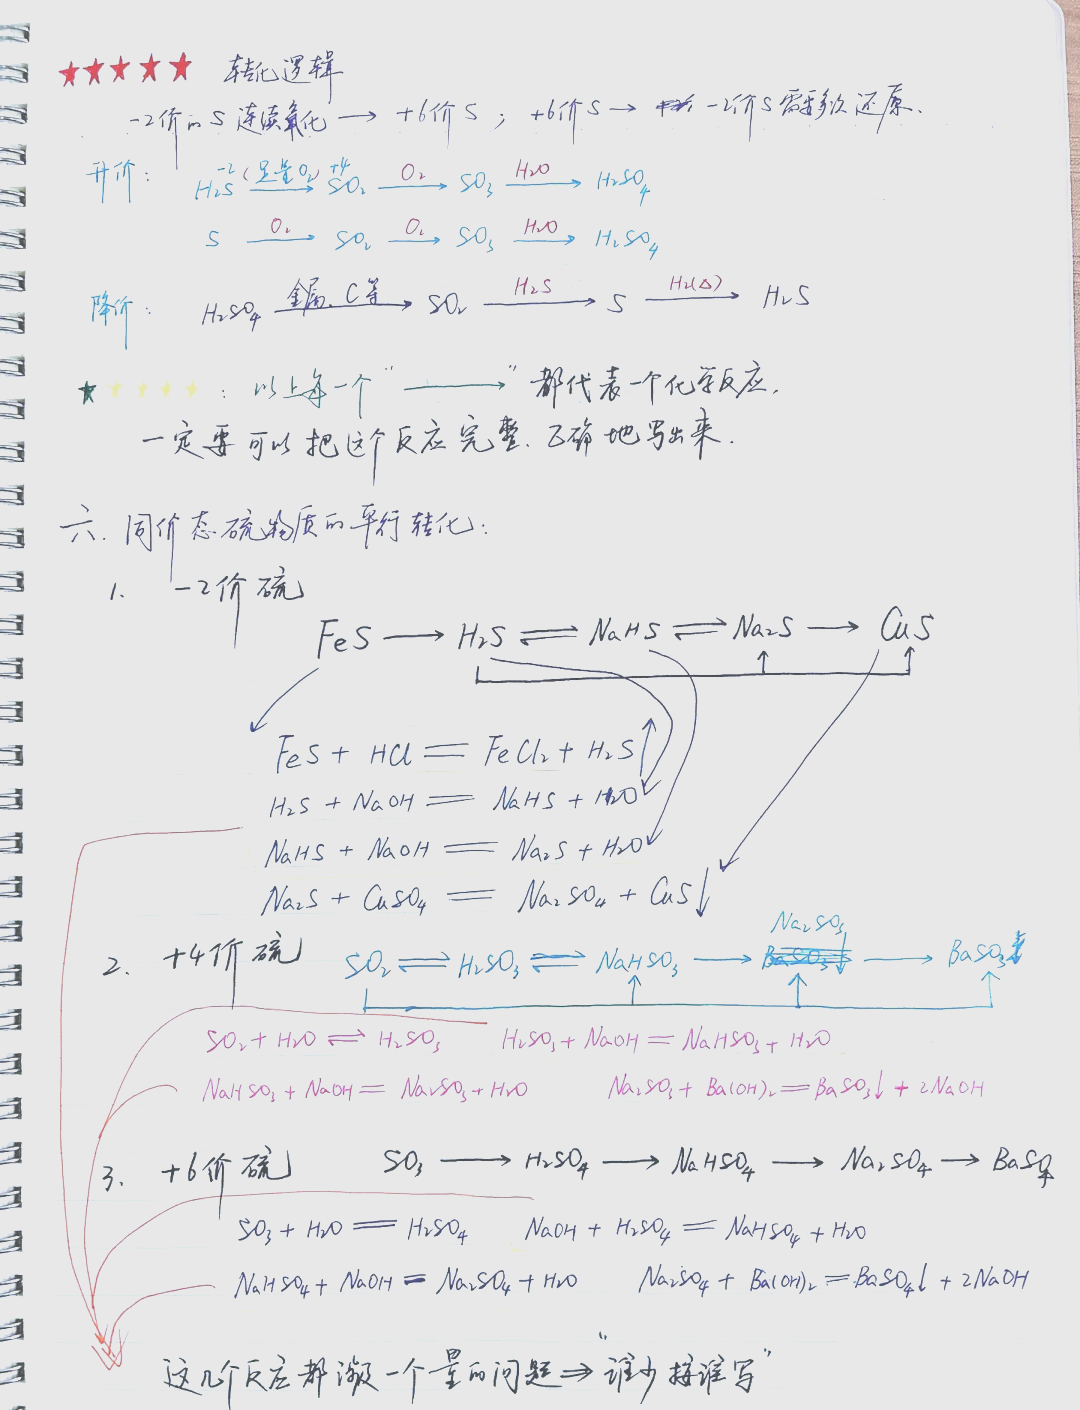 ★★★★★ 转化逻辑
-2价的S 连续氧化 → +6价S ; +6价S → -2价S 需要多次还原.
升价: H₂S —(足量O₂)→ SO₂ —O₂→ SO₃ —H₂O→ H₂SO₄
-2 +4
S —O₂→ SO₂ —O₂→ SO₃ —H₂O→ H₂SO₄
降价: H₂SO₄ —金属、C等→ SO₂ —H₂S→ S —H₂(△)→ H₂S
★★★★★: 以上每一个"——→"都代表一个化学反应,
一定要可以把这个反应完整、正确地写出来.
六. 同价态硫物质的平行转化:
1. -2价硫
FeS → H₂S ⇌ NaHS ⇌ Na₂S → CuS
FeS + HCl = FeCl₂ + H₂S↑
H₂S + NaOH = NaHS + H₂O
NaHS + NaOH = Na₂S + H₂O
Na₂S + CuSO₄ = Na₂SO₄ + CuS↓
2. +4价硫 SO₂ ⇌ H₂SO₃ ⇌ NaHSO₃ → Na₂SO₃ → BaSO₃↓
SO₂ + H₂O ⇌ H₂SO₃ H₂SO₃ + NaOH = NaHSO₃ + H₂O
NaHSO₃ + NaOH = Na₂SO₃ + H₂O Na₂SO₃ + Ba(OH)₂ = BaSO₃↓ + 2NaOH
3. +6价硫 SO₃ → H₂SO₄ → NaHSO₄ → Na₂SO₄ → BaSO₄
SO₃ + H₂O = H₂SO₄ NaOH + H₂SO₄ = NaHSO₄ + H₂O
NaHSO₄ + NaOH = Na₂SO₄ + H₂O Na₂SO₄ + Ba(OH)₂ = BaSO₄↓ + 2NaOH
这几个反应都涉及一个量的问题 ⇒ "谁少按谁写"